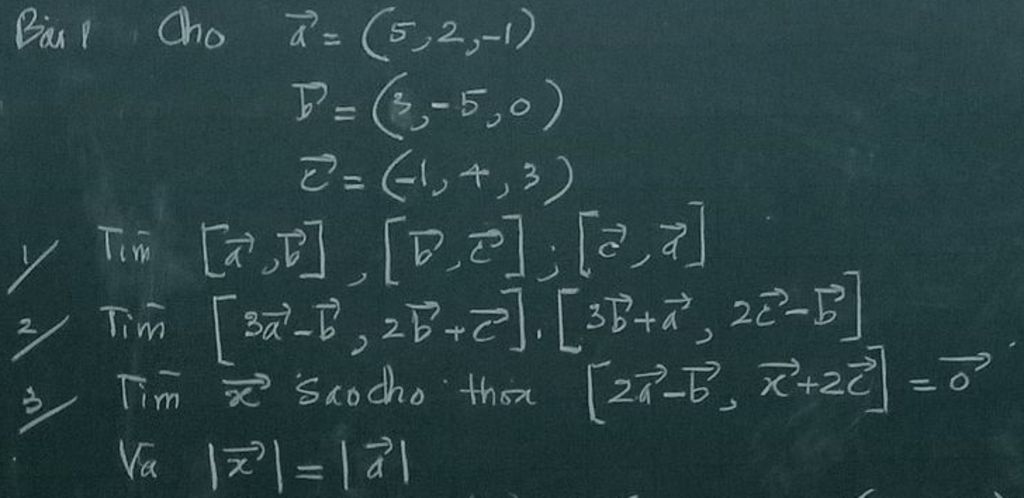 Bài 1 Cho a⃗ = (5, 2, -1)
b⃗ = (3, -5, 0)
c⃗ = (-1, 4, 3)
1/ Tìm [a⃗, b⃗], [b⃗, c⃗]; [c⃗, a⃗]
2/ Tìm [3a⃗ - b⃗, 2b⃗ + c⃗]. [3b⃗ + a⃗, 2c⃗ - b⃗]
3/ Tìm x⃗ sao cho thỏa [2a⃗ - b⃗, x⃗ + 2c⃗] = 0⃗
Và |x⃗| = |a⃗|